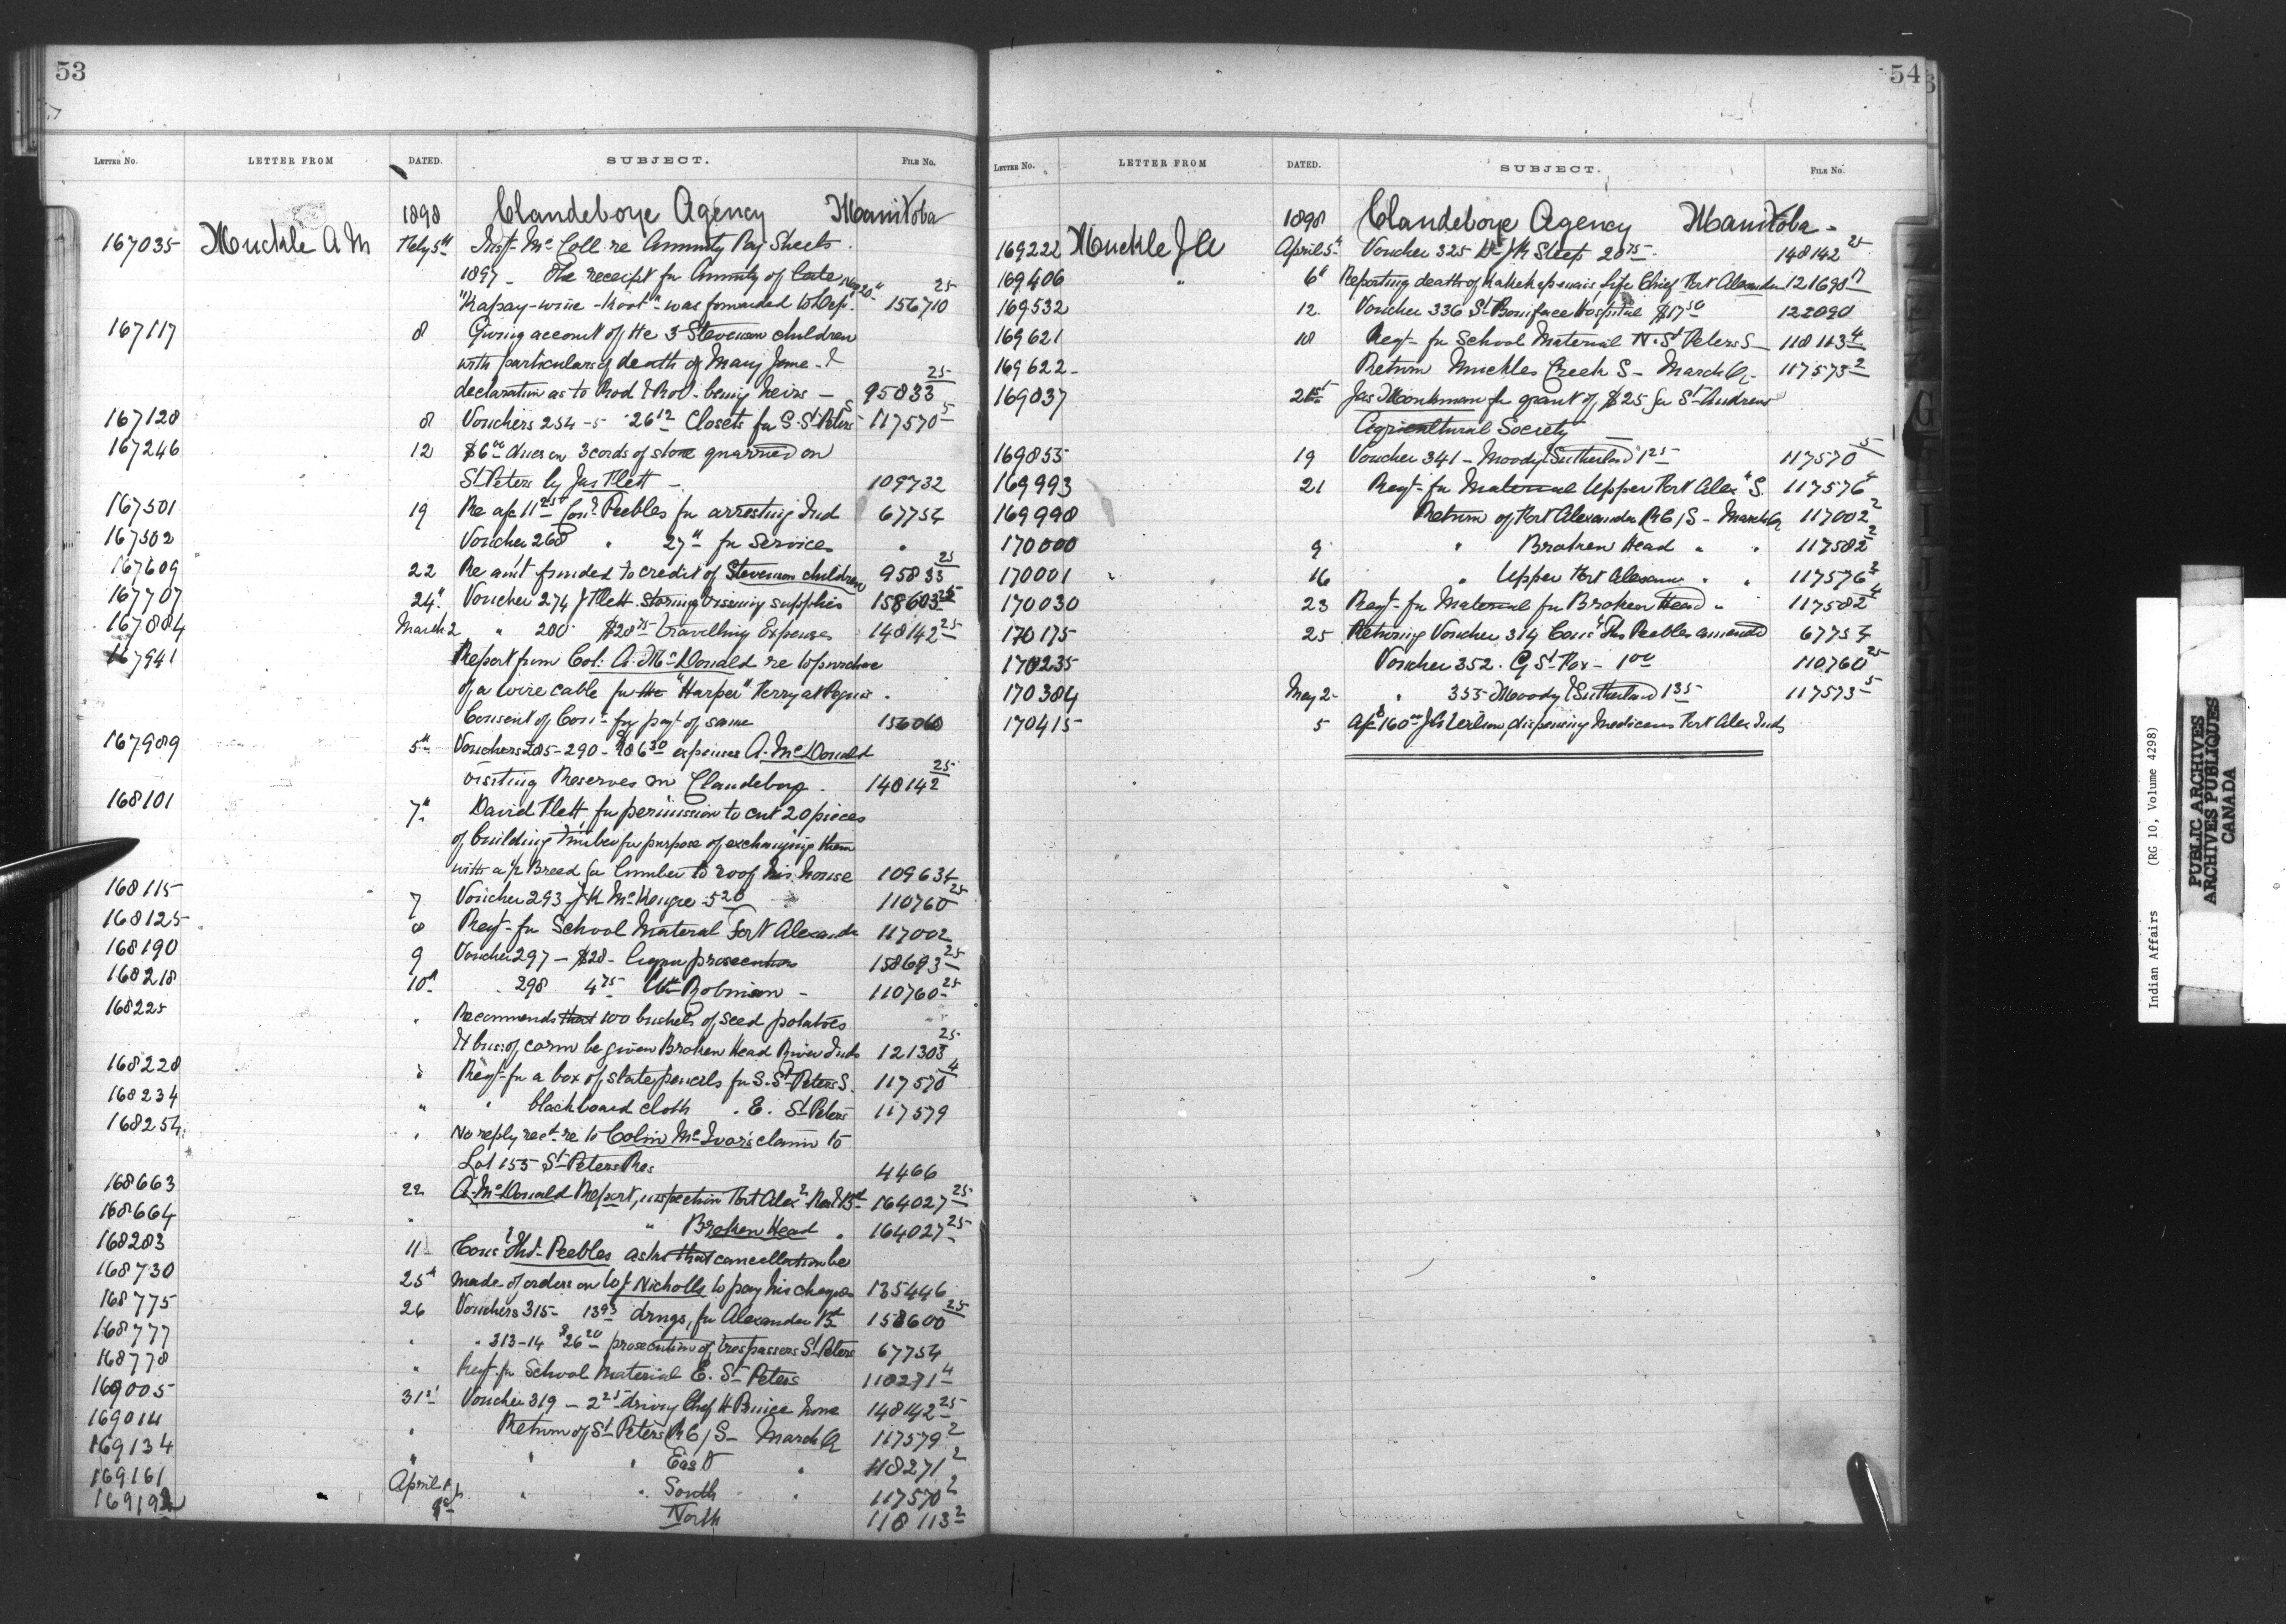 53
LETTER No. LETTER FROM DATED. SUBJECT. FILE No.
1898 Clandeboye Agency Manitoba
167035 Muckle A M Feby 5th Insp. McColl re Annuity Pay Sheets
1897 - The receipt for Annuity of late
was forwarded to Dep. 156710 25
167117 8 Giving account of the 3 Stevenson children
with particulars of death of Mary Jane - &
declaration as to Rod & Rod. being heirs - 95833 25
167128 8 Vouchers 254-5 26 12 Closets for S. St Peters 117570 5
167246 12 $6 00 dues on 3 cords of stone quarried on
St Peters by Jas Flett - 109732
167501 19 Re a/c 11 25 Cons. Peebles for arresting Ind 67754
167502 Voucher 268 " 27 " for Services "
167609 22 Re amt funded to credit of Stevenson children 95833 25
167707 24" Voucher 274 J Flett storing & issuing supplies 158603 25
167884 March 2 " 280 $28 75 travelling Expenses 148142 25
167941 Report from Col: A. McDonald re to purchase
of a wire cable for the "Harper" Ferry at Peguis.
Consent of Con. for payt of same 156060
167989 5th Vouchers 285-290 - $86 30 expenses A. McDonald
visiting Reserves in Clandeboye. 148142 25
168101 7th David Flett, for permission to cut 20 pieces
of building timber for purpose of exchanging them
with a ½ Breed for lumber to roof his house 109634
168115 7 Voucher 293 - J K McKenzie - 5 20 110760 25
168125 8 Reqt- for School Material Fort Alexander 117002
168190 9 Voucher 297 - $28 - Liquor prosecution 158693 25
168218 10th " 298 4 75 Wm Robinson - 110760 25
168225 " Recommends that 100 bushels of seed potatoes
& 4 bus: of corn be given Broken Head River Inds 121303 25
168228 " Reqt- for a box of slate pencils for S. St Peters S. 117570 4
168234 " " blackboard cloth " E. St Peters 117579
168254 " No reply recd re to Colin McIvor's claim to
Lot 155 St Peters Res 4466
168663 22 A. McDonald Report, inspection Fort Alexr Res & Bd 164027 25
168664 " " Broken Head " 164027 25
168283 11 Cons Thos Peebles asks that cancellation be
168730 25th made of orders on W J Nicholls to pay his charges 135446
168775 26 Vouchers 315 - 13 93 drugs, for Alexander Bd 158600 25
168777 " " 313-14 $26 20 prosecution of trespassers St Peters 67754
168778 " Reqt. for School Material E. St Peters 118271 4
169005 31st Voucher 319 - 2 25 driving Chief H Prince home 148142 25
169014 " Return of St Peters R C / S - March Qr 117579 2
169134 " " " East " 118271 2
169161 April " " South " 117570 2
169192 North 118113 2
54
LETTER No. LETTER FROM DATED. SUBJECT. FILE No.
1898 Clandeboye Agency Manitoba -
169222 Muckle J A April 5th Voucher 325 Dr J R Steep 20 75 148142 25
169406 " 6th Reporting death of life Chief Fort Alexander 121698 17
169532 12. Voucher 336 St Boniface Hospital $17 50 122090
169621 18 Reqt- for School Material N. St Peters S - 118113 4
169622 - Return Muckles Creek S - March Qr - 117573 2
169837 21st Jas Monkman for grant of $25 for St Andrews
Agricultural Society
169855 19 Voucher 341 - Moody & Sutherland 1 25 117570 5
169993 21 Reqt- for Material Upper Fort Alex "S. 117576 4
169998 Return of Fort Alexander R C / S - March Qr 117002 2
170000 9 " Broken Head " " 117582 2
170001 16 " Upper Fort Alexander " " 117576 2
170030 23 Reqt- for Material for Broken Head " 117582 4
170175 25 Returning Voucher 314 Cons Thos Peebles amended 67754
170235 Voucher 352. G St. Pox - 1 00 110760 25
170384 May 2 - " 355 - Moody & Sutherland 1 35 117573 5
170415 5 a/c $160 00 J A dispensing Medicines Fort Alex Inds
Indian Affairs (RG 10, Volume 4298)
PUBLIC ARCHIVES
ARCHIVES PUBLIQUES
CANADA
G
I
J
K
L